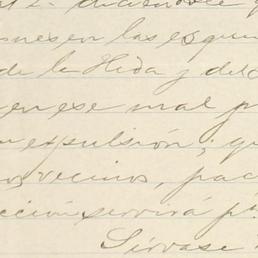 diciendole q
ones en las esquin
de la Hda y del C
en ese mal p
expulsión; qu
os vecinos, pac
cción servirá pa
Sirvase